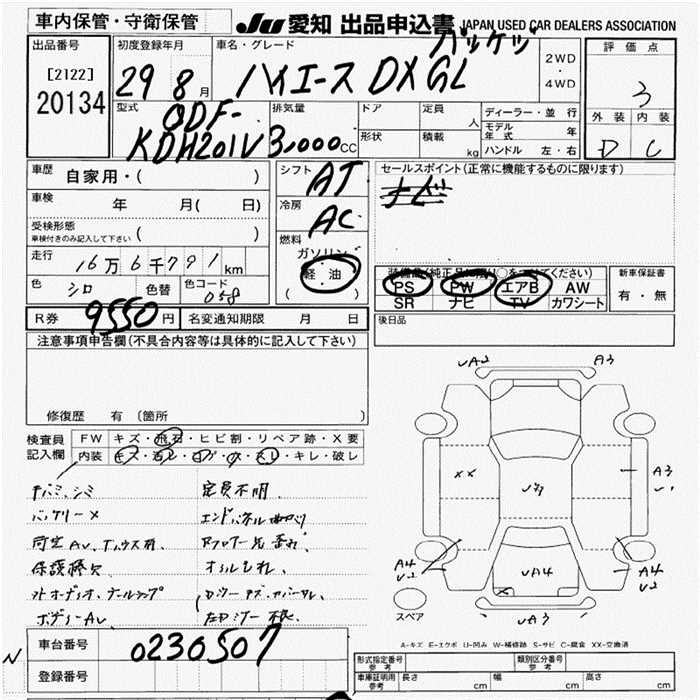 車内保管・守衛保管
JU 愛知 出品申込書 JAPAN USED CAR DEALERS ASSOCIATION
出品番号
[2122]
20134
初度登録年月
29 8 月
車名・グレード
ハイエース DX GL
パッケージ
2WD
・
4WD
評価点
3
外装 内装
D C
型式
QDF-
KDH201V
排気量
3,000 CC
ドア
形状
定員 人
積載 kg
ディーラー・並行
モデル年式 年
ハンドル 左・右
車歴 自家用・( )
車検 年 月( 日)
受検形態
車検付きのみ記入して下さい ( )
走行 16万6千791km
色 シロ 色替 色コード 058
シフト AT
冷房 AC
燃料
ガソリン
軽油
( )
セールスポイント(正常に機能するものに限ります)
ナビ
装備品(純正品に限り○をつけてください)
PS PW エアB AW
SR ナビ TV カワシート
新車保証書
有・無
R券 9550円 名変通知期限 月 日
後日品
注意事項申告欄(不具合内容等は具体的に記入して下さい)
修復歴 有 〔箇所
検査員
記入欄
FW キズ・飛石・ヒビ割・リペア跡・X要
内装 キズ・汚レ・コゲ・穴・スレ・キレ・破レ
定員不明
バッテリーメ
エンドパネル曲がり
オイルもれ
ボデーAU
UA2 A3
XX U3 A3
U1
A4
U2
UA4
A4
U2
X
UA3
スペア
A-キズ E-エクボ U-凹み W-補修跡 S-サビ C-腐食 XX-交換済
N
車台番号 0230507
登録番号
形式指定番号
参考
類別区分番号
参考
車庫証明用
参考
長さ cm 幅 cm 高さ cm